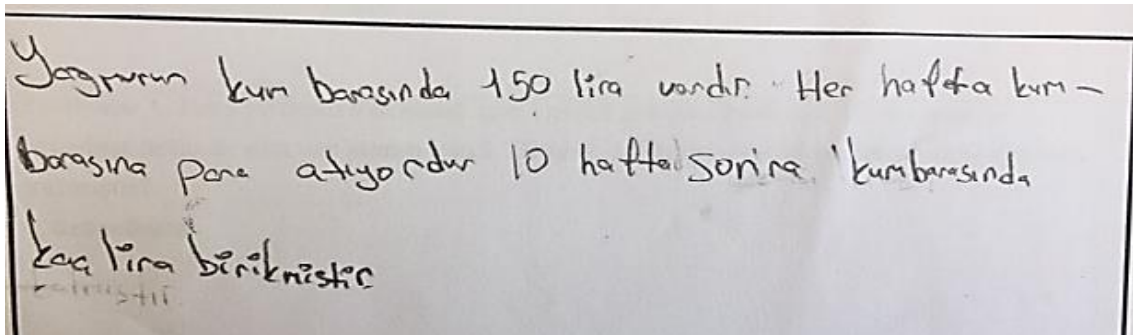 Yagmurun kum barasında 150 lira vardır. Her hafta kum-
barasına para atıyordur 10 hafta sonra kumbarasında
kaç lira birikmiştir